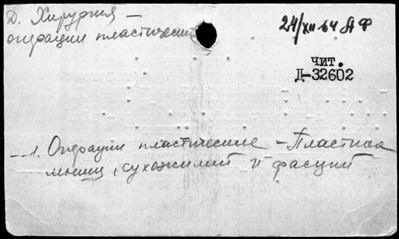 Д. Хирургия –
операции пластические
24/XII 64 АФ
ЧИТ.
Д-32602
1. Операции пластические – Пластика
мышц, сухожилий и фасций